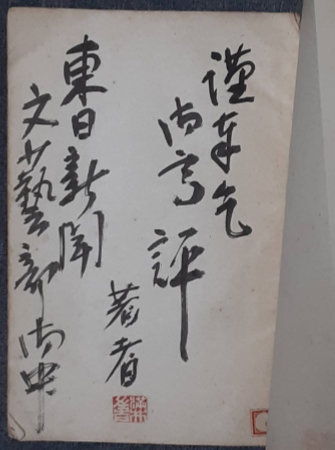 謹奉乞
御高評
著者
東日新聞
文藝部御中